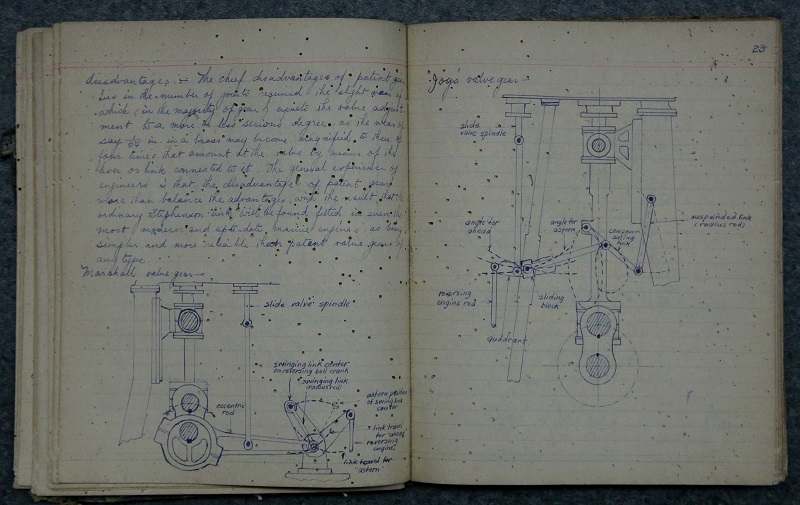 disadvantages :- The chief disadvantages of patent gear
lies in the number of joints required, the slight wear of
which, in the majority of gears, upsets the valve adjust-
ment to a more or less serious degree, as the wear of
say in. in a brass may become magnified to three or
four times that amount at the valve by means of the
lever or link connected to it. The general experience of
engineers is that the disadvantages of patent gears
more than balance the advantages, with the result that the
ordinary Stephenson link will be found fitted in even the
most modern and up to date marine engines, as being
simpler and more reliable than patent valve gears of
any type.
Marshall valve gear
slide valve spindle
swinging link center
on reversing bell crank
swinging link
(radius rod)
eccentric
rod
astern position
of swing link
center
link travel
for "ahead"
reversing
engine
link travel for
"astern"
23
Joy's valve gear
slide
valve spindle
angle for
ahead
angle for
astern
suspended link
(radius rod)
reversing
engine rod
sliding
block
quadrant